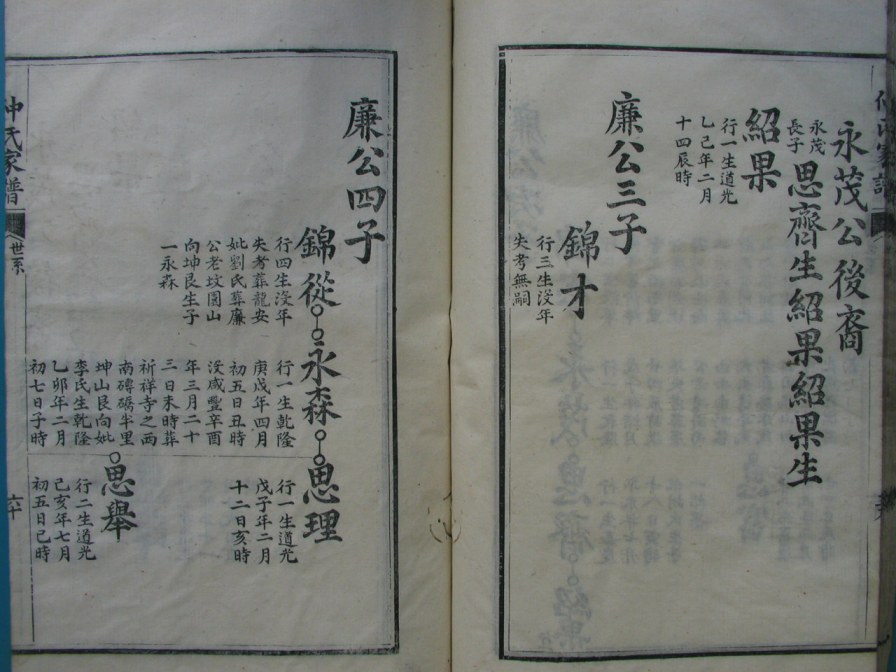 永茂公後裔
永茂
長子
思齊生紹果紹果生
紹果
行一生道光
乙己年二月
十四辰時
廉公三子
錦才
行三生没年
失考無嗣
廉公四子
錦從
行四生没年
失考葬龍安
妣劉氏葬廉
公老坟圓山
向坤艮生子
一永森
永森
行一生乾隆
庚戌年四月
初五日丑時
没咸豐辛酉
年三月二十
三日未時葬
祈祥寺之西
南磚礄半里
坤山艮向妣
李氏生乾隆
乙卯年二月
初七日子時
思理
行一生道光
戊子年二月
十二日亥時
思舉
行二生道光
己亥年七月
初五日己時
仲氏家譜
世系
六十